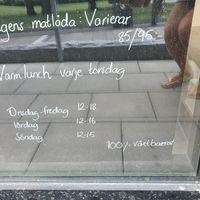 gens matlåda: Varierar
85/95:-
Varmlunch varje torsdag
Onsdag-fredag 12-18
lördag 12-16
Söndag 12-15
100% Växtbaserat